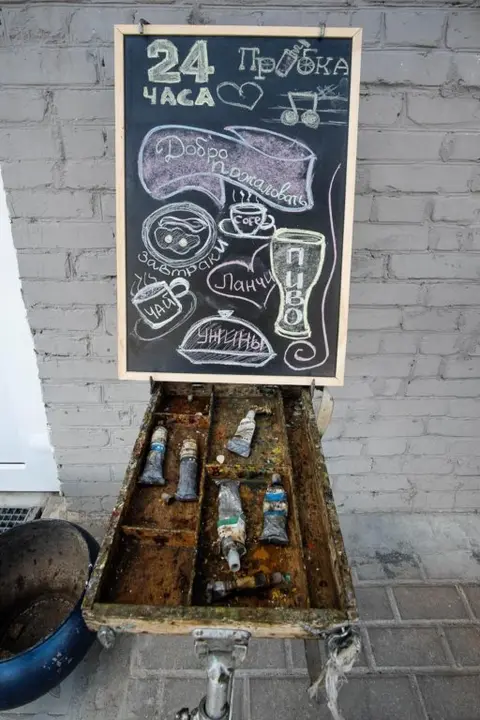 24
ЧАСА
Пробка
Добро
Пожаловать
Cofe
Завтраки
ПИВО
Ланчи
ЧАЙ
УЖИНЫ